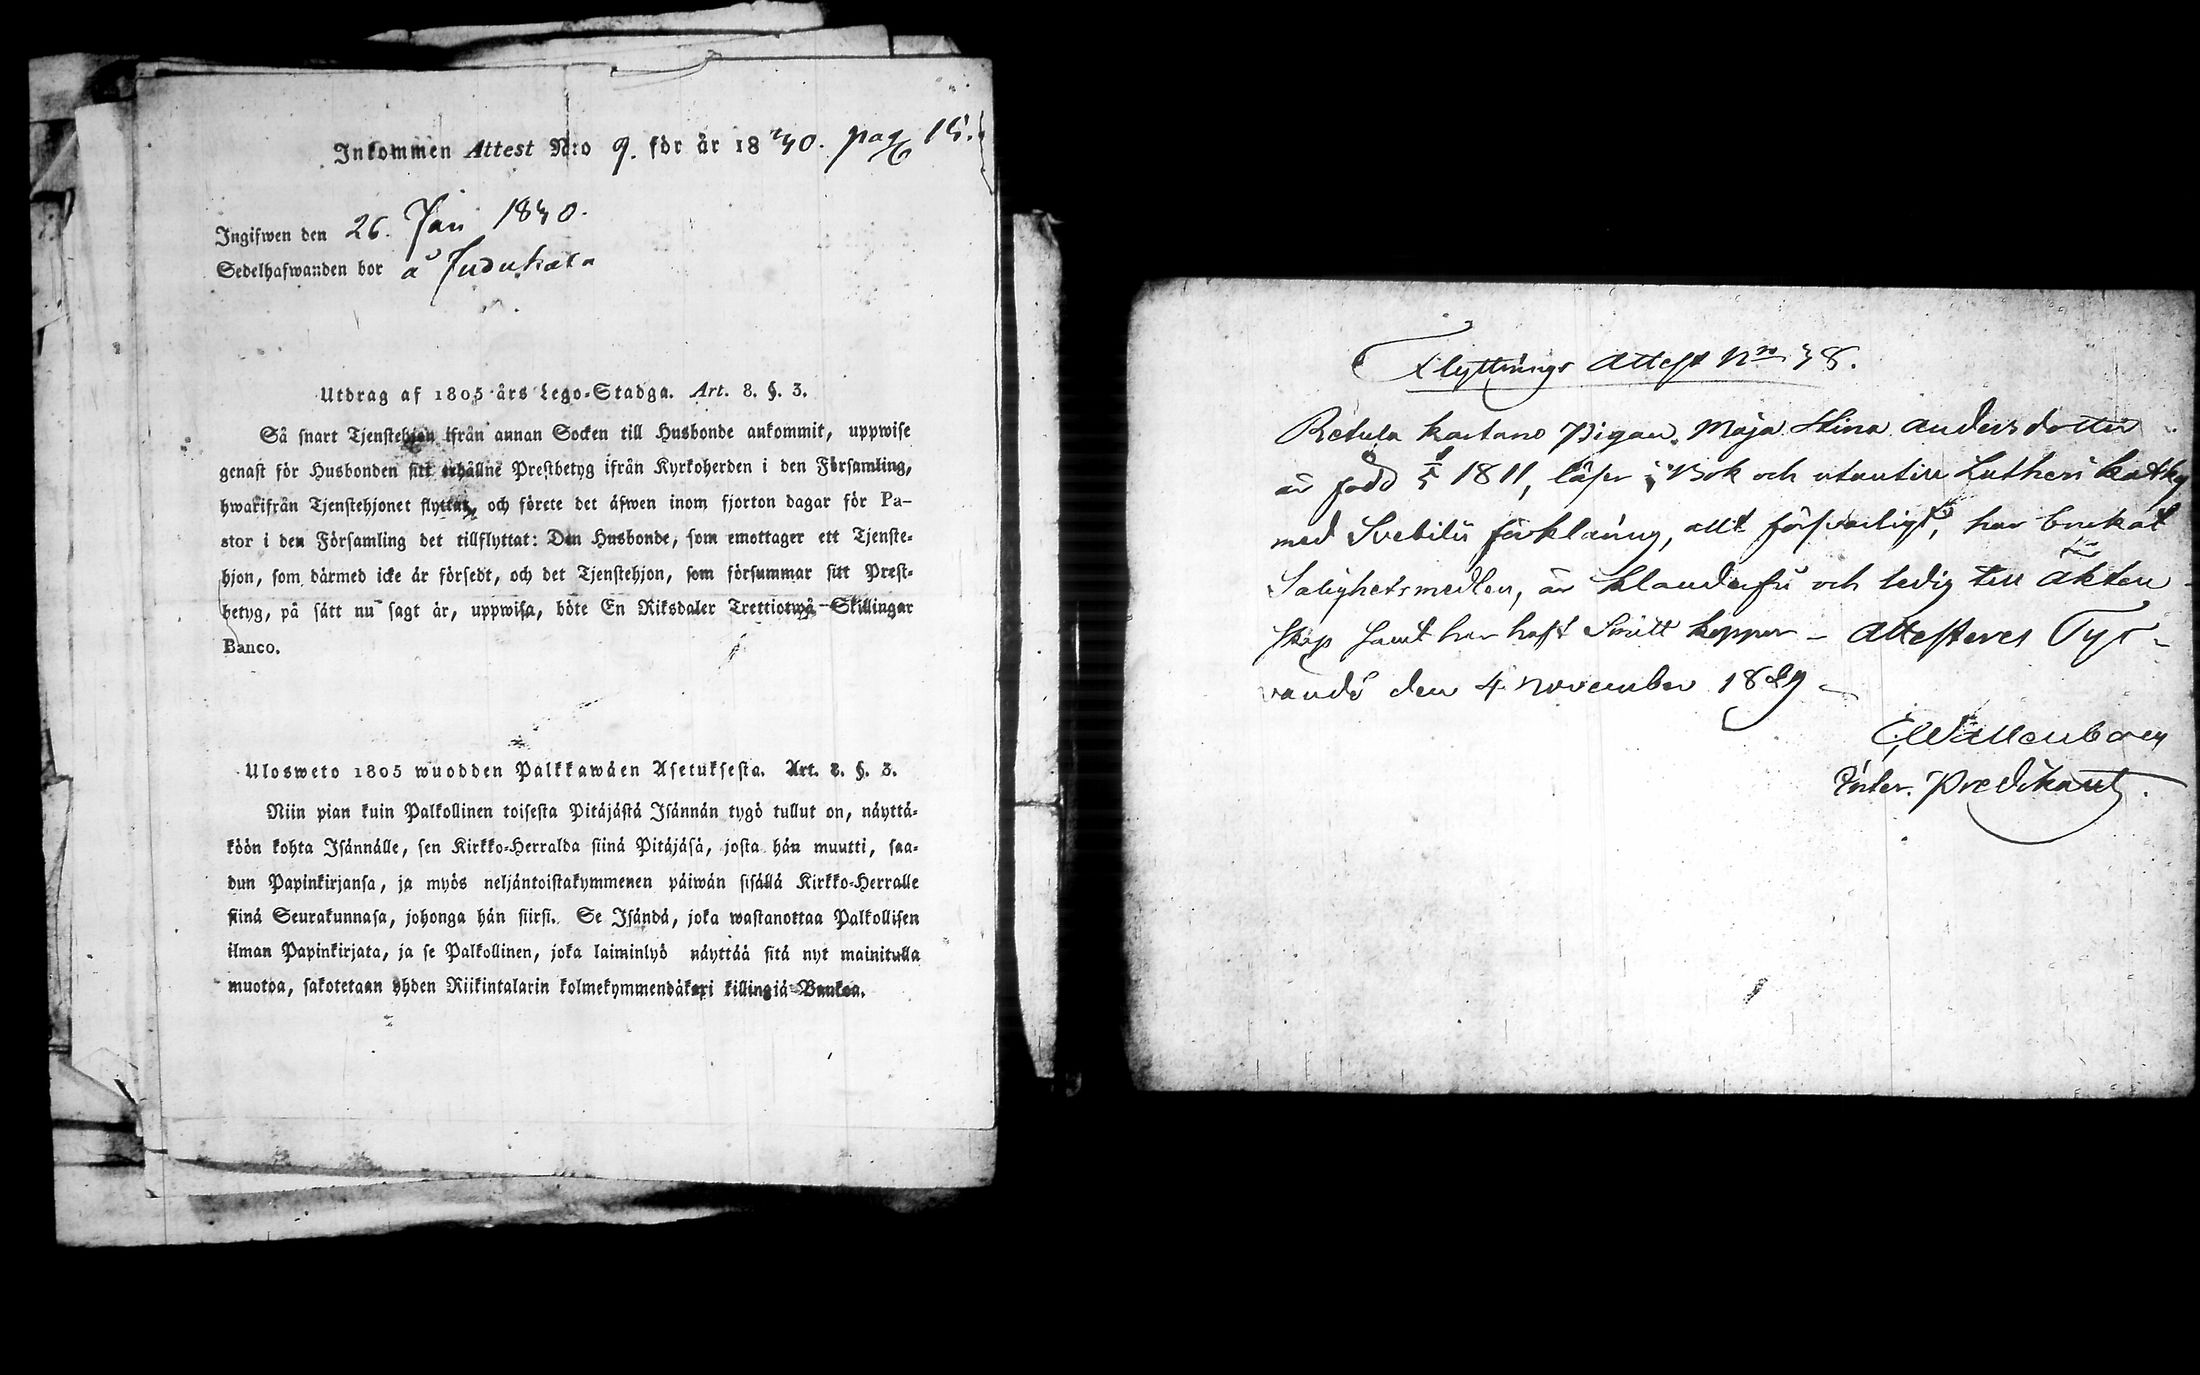 Inkommen Attest N:o 9. för år 1840. pag 15.
Ingifwen den 26. Jan 1840.
Sedelhafwanden bor å Judukala
Utdrag af 1805 års Lego-Stadga. Art. 8. §. 3.
Så snart Tjenstehjon ifrån annan Socken till Husbonde ankommit, uppwise
genast för Husbonden sitt erhållne Prestbetyg ifrån Kyrkoherden i den Församling,
hwarifrån Tjenstehjonet flyttat, och förete det äfwen inom fjorton dagar för Pa-
stor i den Församling det tillflyttat: Den Husbonde, som emottager ett Tjenste-
hjon, som därmed icke är försedt, och det Tjenstehjon, som försummar sitt Prest-
betyg, på sätt nu sagt är, uppwisa, böte En Riksdaler Trettiotwå Skillingar
Banco.
Ulosweto 1805 wuodden Palkkawäen Asetuksesta. Art. 8. §. 3.
Niin pian kuin Palkollinen toisesta Pitäjästä Isännän tygö tullut on, näyttä-
köön kohta Isännälle, sen Kirkko-Herralda siinä Pitäjäsä, josta hän muutti, saa-
dun Papinkirjansa, ja myös neljäntoistakymmenen päiwän sisällä Kirkko-Herralle
siinä Seurakunnasa, johonga hän siirsi. Se Isändä, joka wastanottaa Palkollisen
ilman Papinkirjata, ja se Palkollinen, joka laiminlyö näyttää sitä nyt mainitulla
muotoa, sakotetaan yhden Riikintalarin kolmekymmendäkaxi killingiä Bankoa.
Flyttnings Attest Nro 38.
Retula Kartano Pigan Maja Stina Andersdotter
är född 1/5 1811, läser i Bok och utantill Lutheri Catky
med Svebilii förklaring, allt försvarligt, har brukat
Salighetsmedlen, är klanderfri och ledig till äkten
skap samt har haft Smitt koppor – Attesteres Tyr-
vändö den 4 November 1839 –
E Wallenborg
Enter. Predikant.